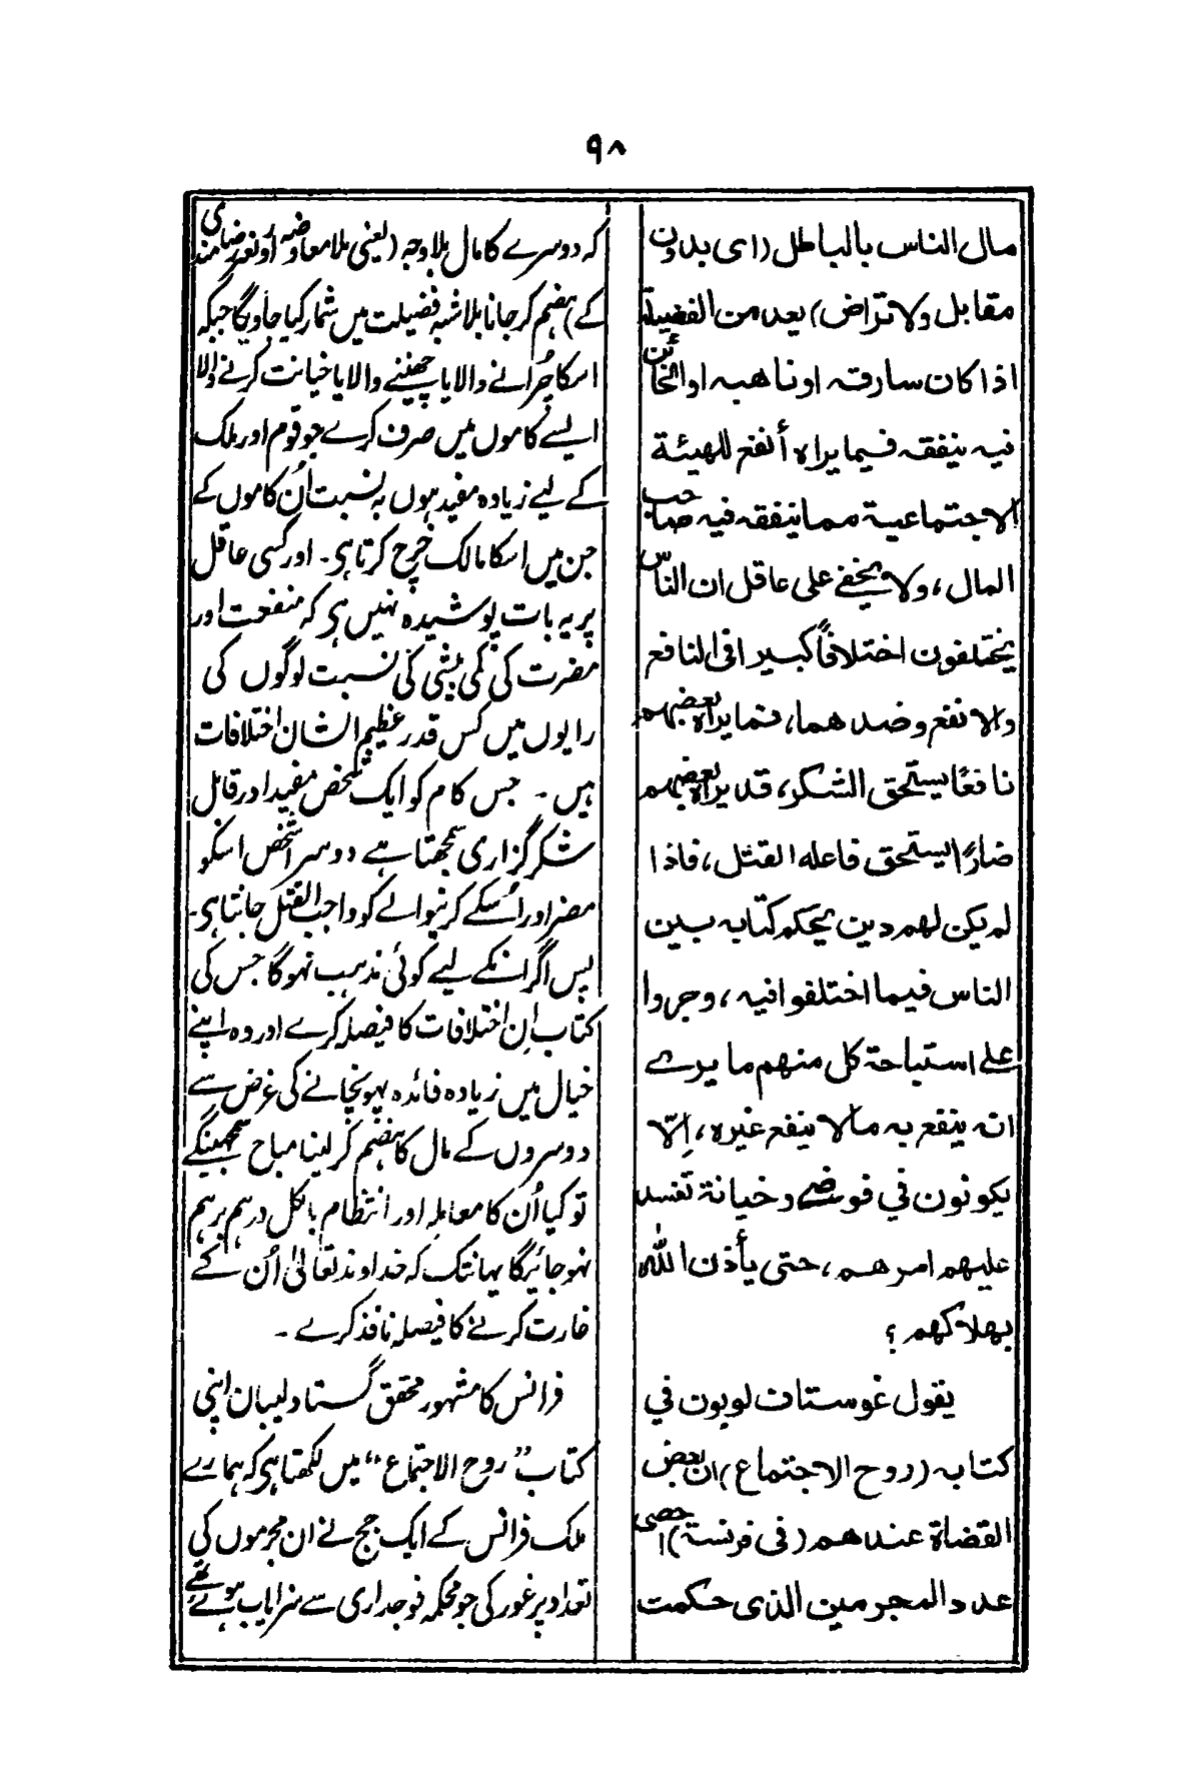 ٩٨
مال الناس بالباطل (اى بدون
مقابل ولا تراض) يعد من الفضيلة
اذا كان سارقه او ناهبه او الخائن
فيه ينفقه فيما يراه أنفع للهيئة
الاجتماعية مما ينفقه فيه صاحب
المال، ولا يخفى على عاقل ان الناس
يختلفون اختلافاً كبيرا فى النافع
والانفع وضدهما، فما يراه بعضهم
نافعًا يستحق الشكر، قد يراه بعضهم
ضارًا يستحق فاعله القتل، فاذا
لم يكن لهم دين يحكم كتابه بين
الناس فيما اختلفوا فيه، وجروا
على استباحة كل منهم ما يرى
انه ينفع به مالا ينفع غيره، إلّا
يكونون في فوضى وخيانة تفسد
عليهم امرهم، حتى يأذن الله
بهلاكهم؟
يقول غوستاف لوبون في
كتابه (روح الاجتماع) ان بعض
القضاة عندهم (فى فرنسة) احصى
عدد المجرمين الذى حكمت
کہ دوسرے کا مال بلاوجہ (یعنی بلامعاوضہ اور بغیر رضامندی
کے) ہضم کر جانا بلاشبہ فضیلت میں شمار کیا جاویگا جبکہ
اسکا چُرانے والا یا چھیننے والا یا خیانت کرنے والا
ایسے کاموں میں صرف کرے جو قوم اور ملک
کے لیے زیادہ مفید ہوں بہ نسبت اُن کاموں کے
جن میں اسکا مالک خرچ کرتا ہی۔ اور کسی عاقل
پر یہ بات پوشیدہ نہیں ہی کہ منفعت اور
مضرت کی کمی بیشی کی نسبت لوگوں کی
رایوں میں کس قدر عظیم الشان اختلافات
ہیں۔ جس کام کو ایک شخص مفید اور قابل
شکر گزاری سمجھتا ہے دوسرا شخص اسکو
مضر اور اُسکے کرنیوالے کو واجب القتل جانتا ہی۔
پس اگر انکے لیے کوئی مذہب نہوگا جس کی
کتاب اِن اختلافات کا فیصلہ کرے اور وہ اپنے
خیال میں زیادہ فائدہ پہونچانے کی غرض سے
دوسروں کے مال کا ہضم کر لینا مباح سمجھینگے
تو کیا اُن کا معاملہ اور انتظام بالکل درہم برہم
نہو جائیگا یہانتک کہ خداوند تعالیٰ اُن کے
غارت کرنے کا فیصلہ نافذ کرے۔
فرانس کا مشہور محقق گستاولیبان اپنی
کتاب ”روح الاجتماع“ میں لکھتا ہی کہ ہمارے
ملک فرانس کے ایک جج نے ان مجرموں کی
تعداد پر غور کی جو محکمہ فوجداری سے سزایاب ہوئے تھے